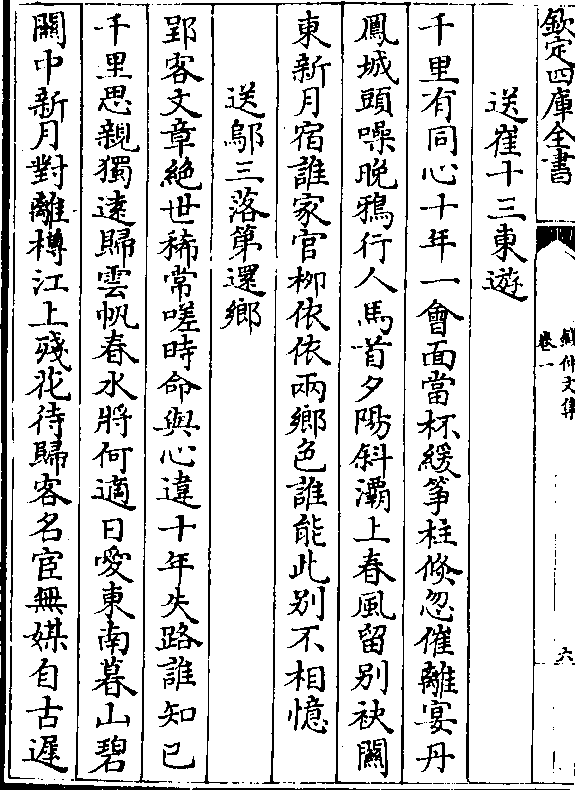 欽定四庫全書
錢仲文集
卷一
六
送崔十三東遊
千里有同心十年一會面當杯緩箏柱倏忽催離宴丹
鳳城頭噪晚鴉行人馬首夕陽斜灞上春風留别袂關
東新月宿誰家官柳依依兩鄉色誰能此别不相憶
送鄔三落第還鄉
郢客文章絶世稀常嗟時命與心違十年失路誰知己
千里思親獨遠歸雲帆春水將何適日愛東南暮山碧
關中新月對離樽江上殘花待歸客名宦無媒自古遲